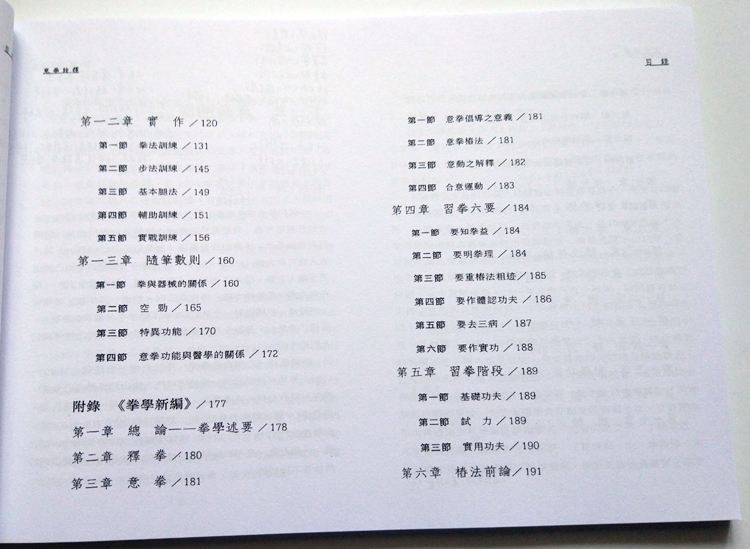 意拳詮釋
第一二章 實 作／120
第一節 拳法訓練／131
第二節 步法訓練／145
第三節 基本腿法／149
第四節 輔助訓練／151
第五節 實戰訓練／156
第一三章 隨筆數則／160
第一節 拳與器械的關係／160
第二節 空 勁／165
第三節 特異功能／170
第四節 意拳功能與醫學的關係／172
附錄 《拳學新編》／177
第一章 總 論——拳學述要／178
第二章 釋 拳／180
第三章 意 拳／181
目 錄
第一節 意拳倡導之意義／181
第二節 意拳樁法／181
第三節 意動之解釋／182
第四節 合意運動／183
第四章 習拳六要／184
第一節 要知拳益／184
第二節 要明拳理／184
第三節 要重樁法粗迹／185
第四節 要作體認功夫／186
第五節 要去三病／187
第六節 要作實功／188
第五章 習拳階段／189
第一節 基礎功夫／189
第二節 試 力／189
第三節 實用功夫／190
第六章 樁法前論／191